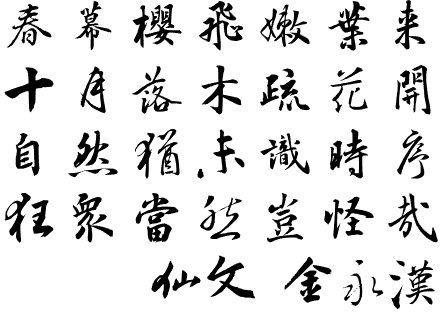 春幕櫻飛嫩葉来
十月落木疏花開
自然猶未識時序
狂衆當然豈怪哉
仙文 金永漢